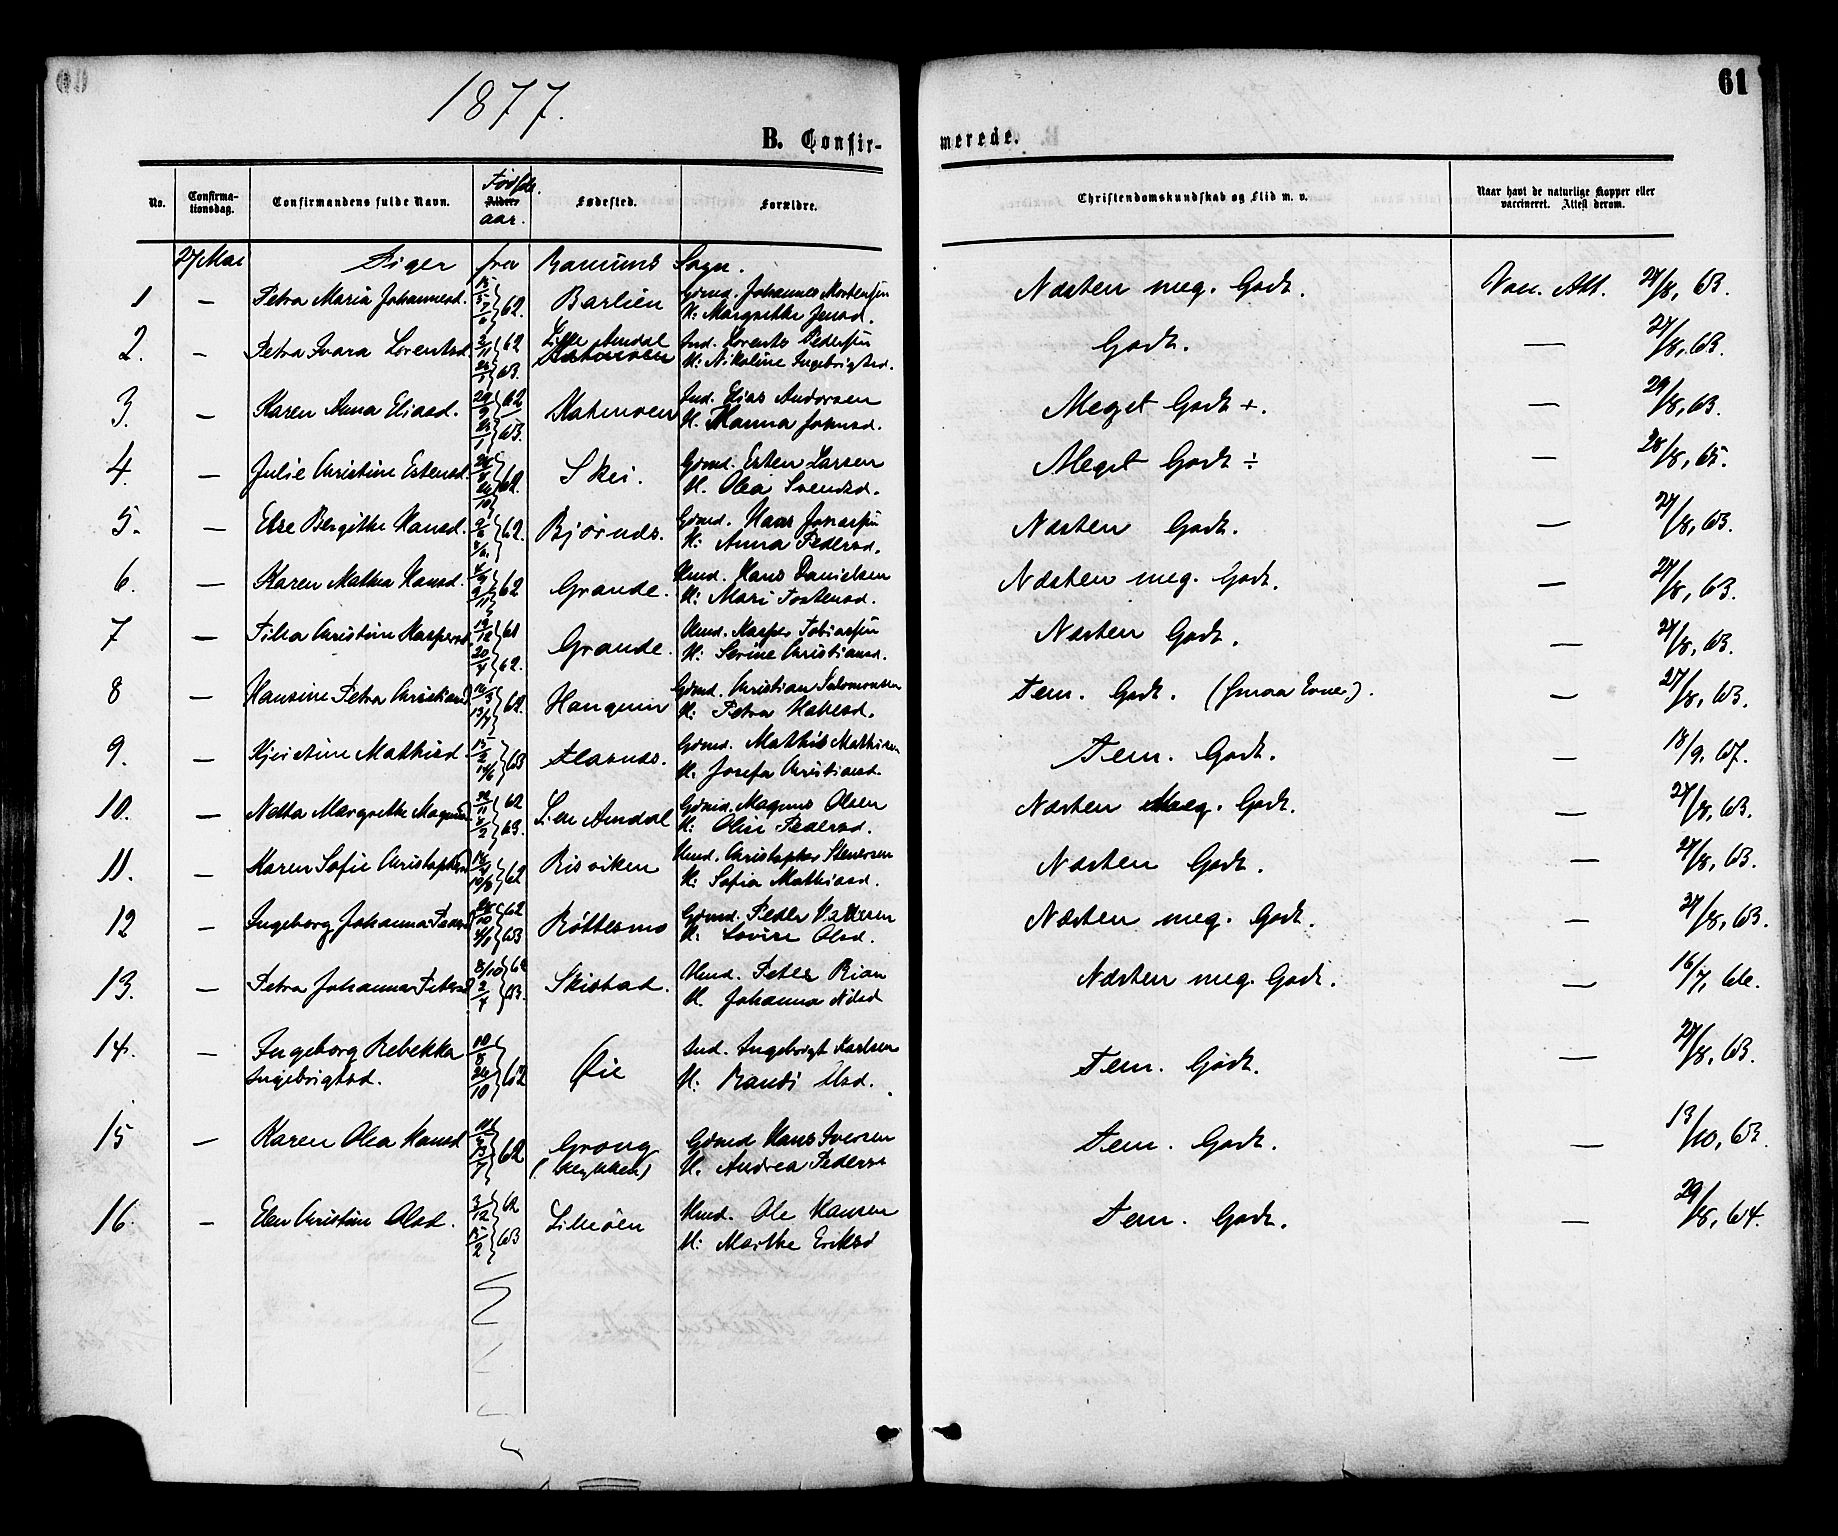 1877.
61
B. Confir-
merede.
No.
Confirma-
tionsdag.
Confirmandens fulde Navn.
Fødsels
Alders
aar.
Fødested.
Forældre.
Christendomskundskab og Flid m. v.
Naar havt de naturlige Kopper eller
vaccineret. Attest derom.
27 Mai Piger fra Ranums Sogn.
1 — Petra Maria Johannesd. 62. Barlien Gdmd. Johannes Mortensen K: Margrethe Jensd. Næsten meg. Godt. Vac. Att. 27/8, 63.
2. — Petra Ivara Lorentsd. 3/11 62 63. Lille Amdal Ind. Lorents Pedersen K: Nikoline Ingebrigtsd. Godt. — 27/8, 63.
3. — Karen Anna Eliasd. 29/9 62 /1 63. Ind. Elias Andersen K. Hanna Johnsd. Meget Godt +. — 29/8, 63.
4. — Julie Christine Estensd. 62. Skei. Gdmd. Esten Larsen K. Olea Svendsd. Meget Godt ÷ — 28/8, 65.
5. — Else Bergitte Hansd. 62. Bjørnds. Gdmd. Haas Johansen K: Anna Pedersd. Næsten Godt. — 27/8, 63.
6. — Karen Mathea Hansd. 62 Grande. Hmd. Hans Danielsen K: Mari Tostensd. Næsten meg. Godt. — 27/8, 63.
7 — Christine Kaspersd. 19/12 61 20/4 62. Grande. Hmd. Kasper Tobiassen K: Serine Christiansd. Næsten Godt. — 27/8, 63.
8 — Hansine Petra Christiansd. 13/7 62. Hangnin Gdmd. Christian Salomonsen K: Petra Hansd. Tem. Godt. (smaa Evner). — 27/8, 63.
9. — Kjerstine Mathisd. 14/6 63 Flasnds. Gdmd. Mathis Mathisen K. Josefa Christiansd. Tem. Godt. — 18/9, 67.
10. — Netta Margrethe Magnusd. 62 /2 63. Lille Amdal Gdmd. Magnus Olsen K: Oline Pedersd. Næsten Meg. Godt. — 27/8, 63.
11. — Karen Sofie Christophersd. 10/8 62 Risviken Hmd. Christopher Stenersen K: Sofia Mathiasd. Næsten Godt. — 27/8, 63.
12 — Ingeborg Johanna Pedersd. 62 4/1 63 Røttesmo Gdmd. Peder Pedersen K: Lovise Olsd. Næsten meg. Godt. — 27/8, 63.
13. — Petra Johanna Petersd. 8/10 62 2/4 63. Skistad. Hmd. Peter Rian K. Johanna Nilsd Næsten meg. Godt. — 16/7, 66.
14. — Ingeborg Rebekka
Ingebrigtsd. 10/8 26/10 62 Øie Ind. Ingebrigt Karlsen K: Randi Olsd. Tem. Godt. — 27/8, 63.
15 — Karen Olea Hansd 13/7 62 Grong Gdmd Hans Iversen K. Andrea Pedersd Tem. Godt. — 13/10, 63.
16. — Elen Christine Olsd. 3/12 62 15/2 63 Lilleøen Hmd. Ole Hansen K: Marthe Eriksd Tem. Godt. — 29/8, 64.